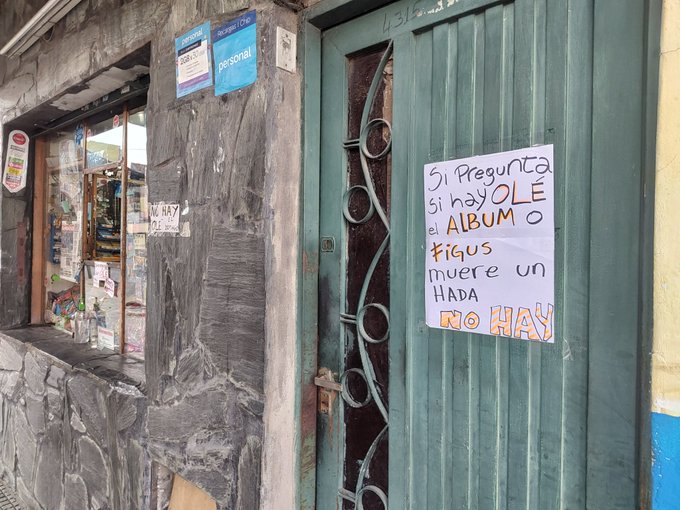 4315
personal
Recargas | Chip
personal
NO HAY
EL
OLÉ
Si Pregunta
si hay OLÉ
el ALBUM o
FiGUS
muere un
HADA
NO HAY